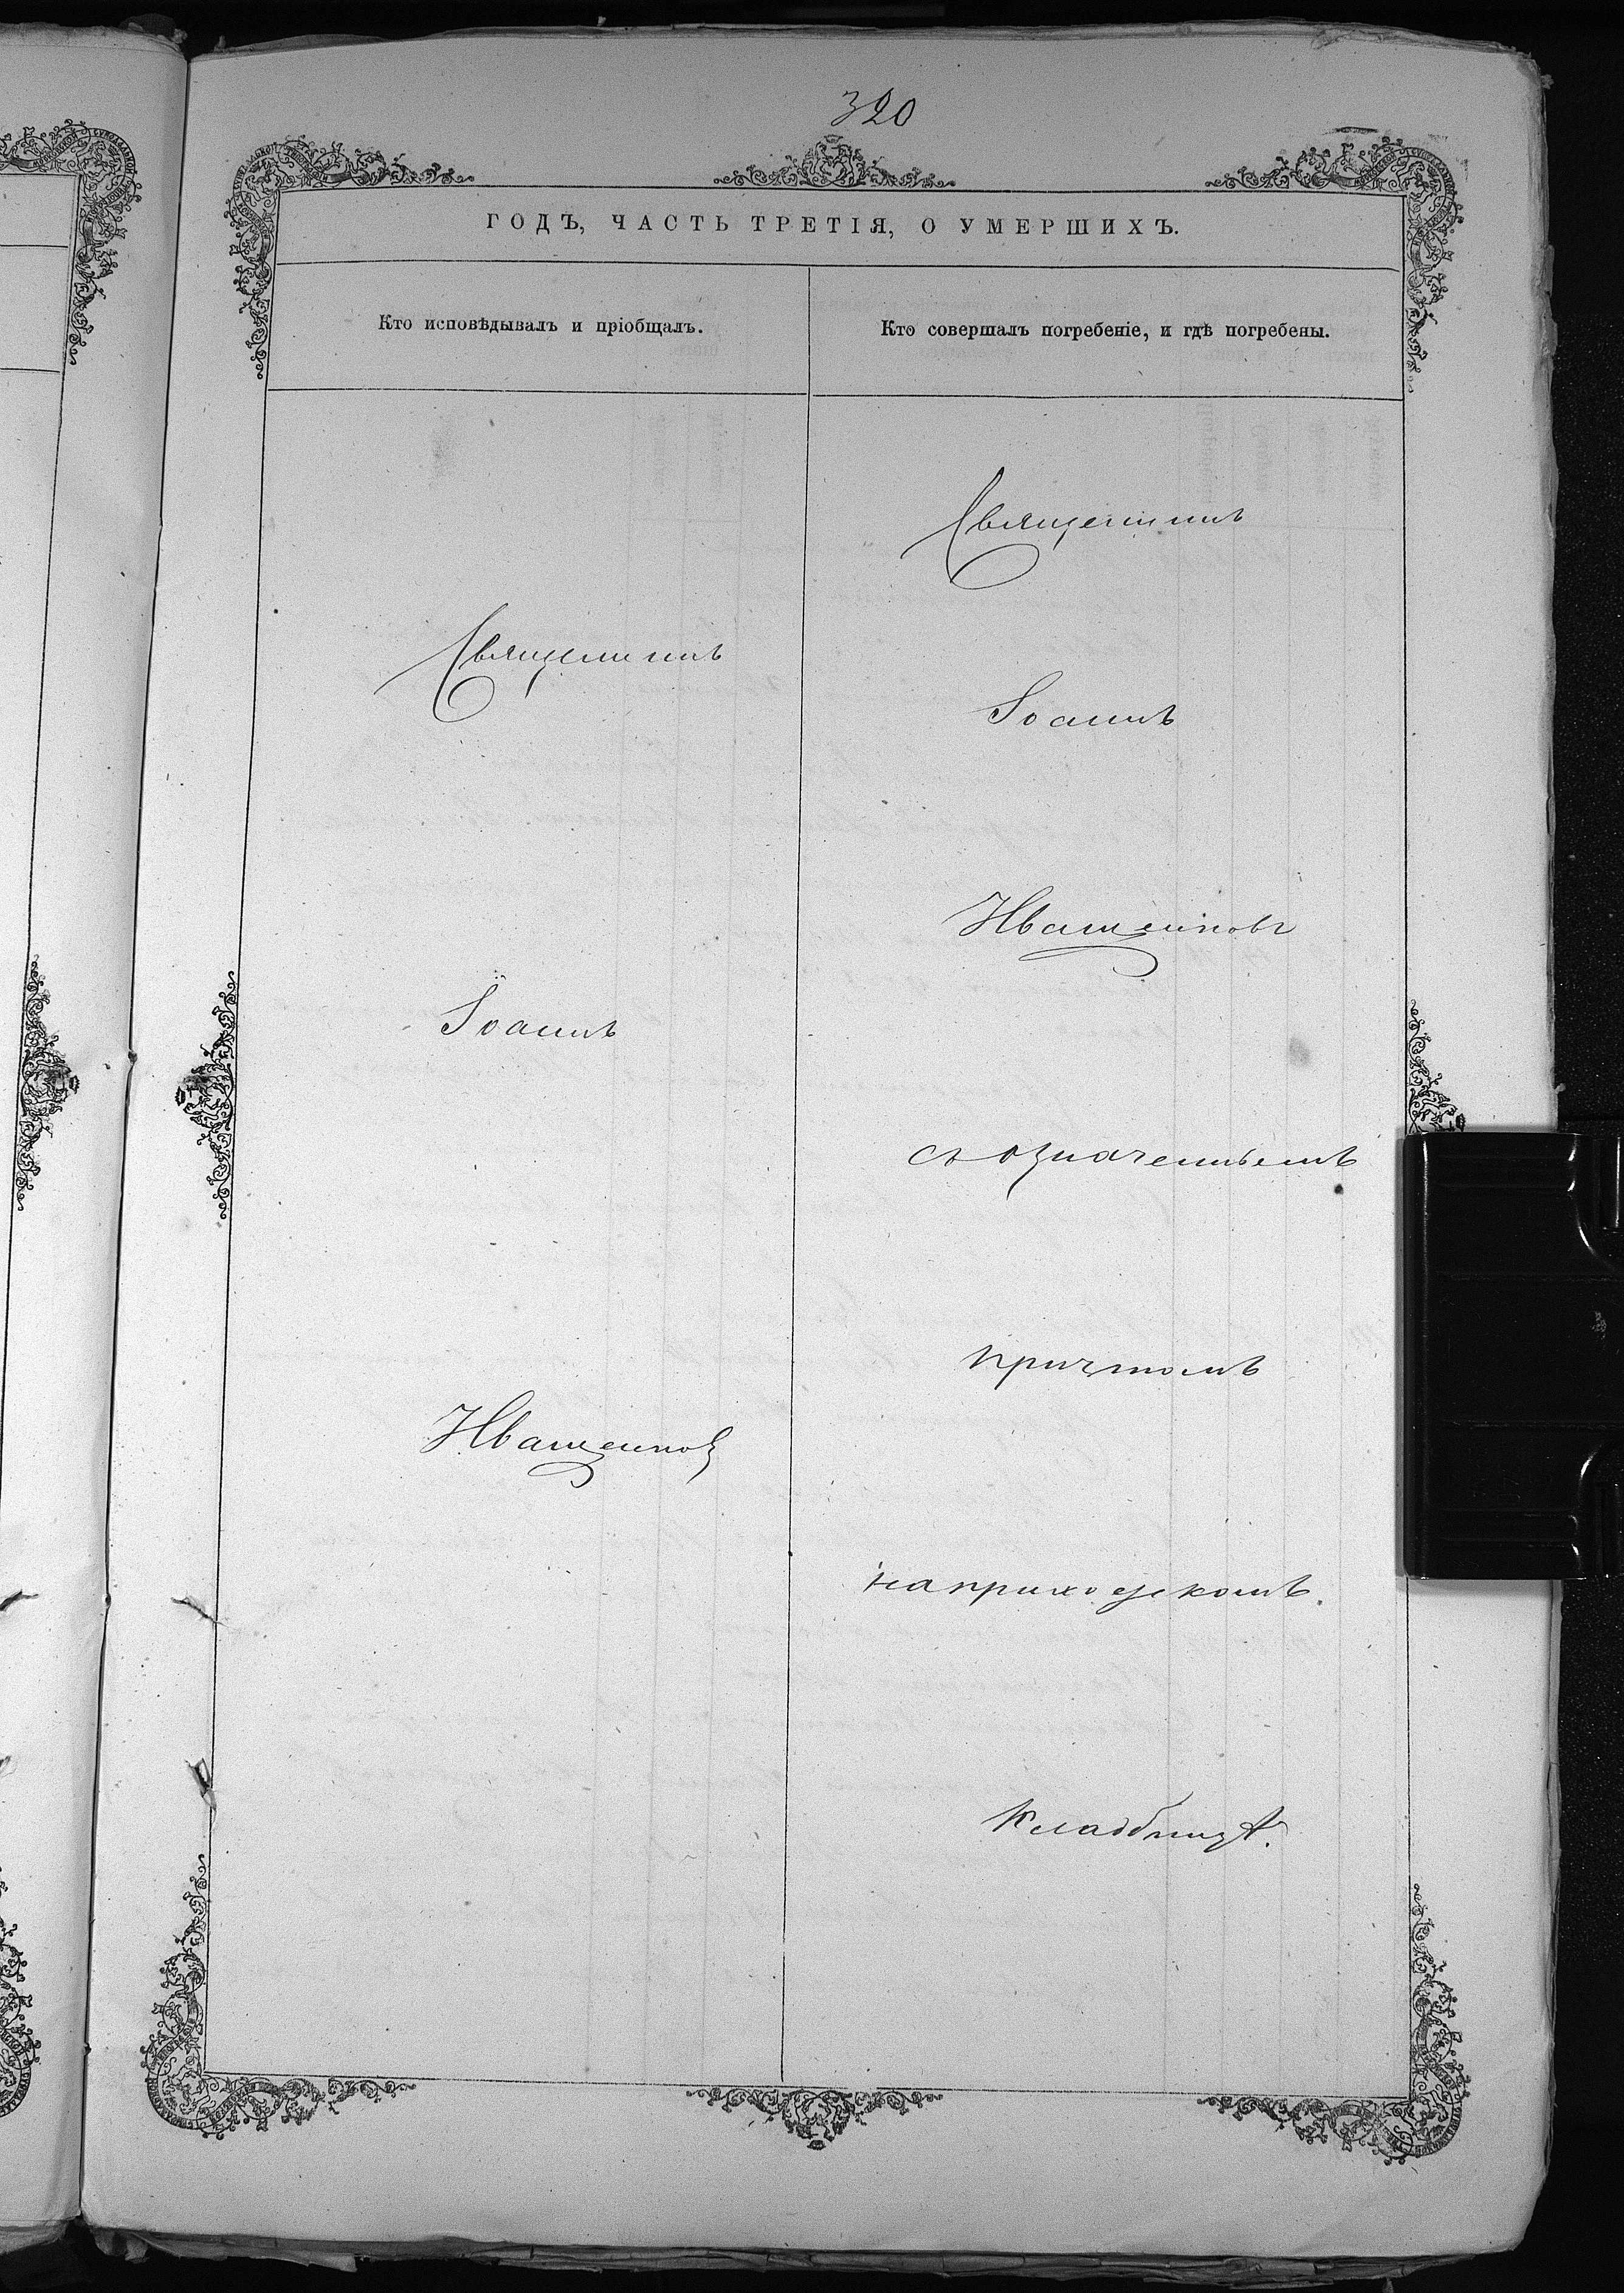 320
ГОДЪ, ЧАСТЬ ТРЕТІЯ, О УМЕРШИХЪ.
Кто исповѣдывалъ и пріобщалъ.
Священникъ
Іоаннъ
Иващенков
Кто совершалъ погребеніе, и гдѣ погребены.
Священникъ
Іоаннъ
Иващенковъ
съ означеннымъ
причтомъ
на приходскомъ
Кладбищѣ.